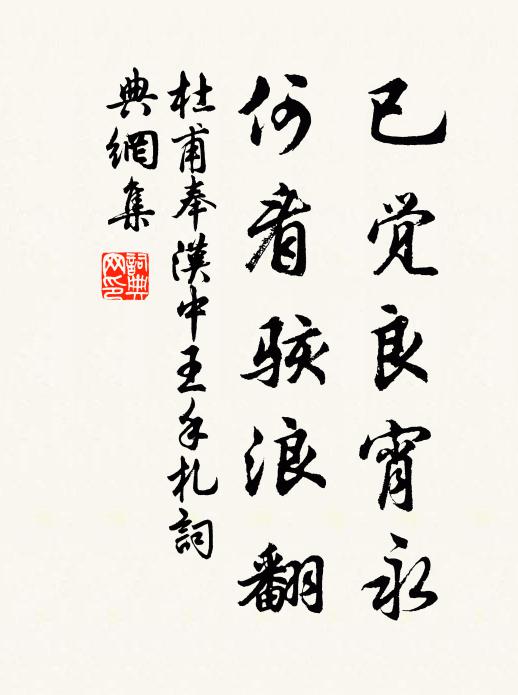 已觉良宵永
何看骇浪翻
杜甫奉漢中王手札詞
典網集
詞典网印